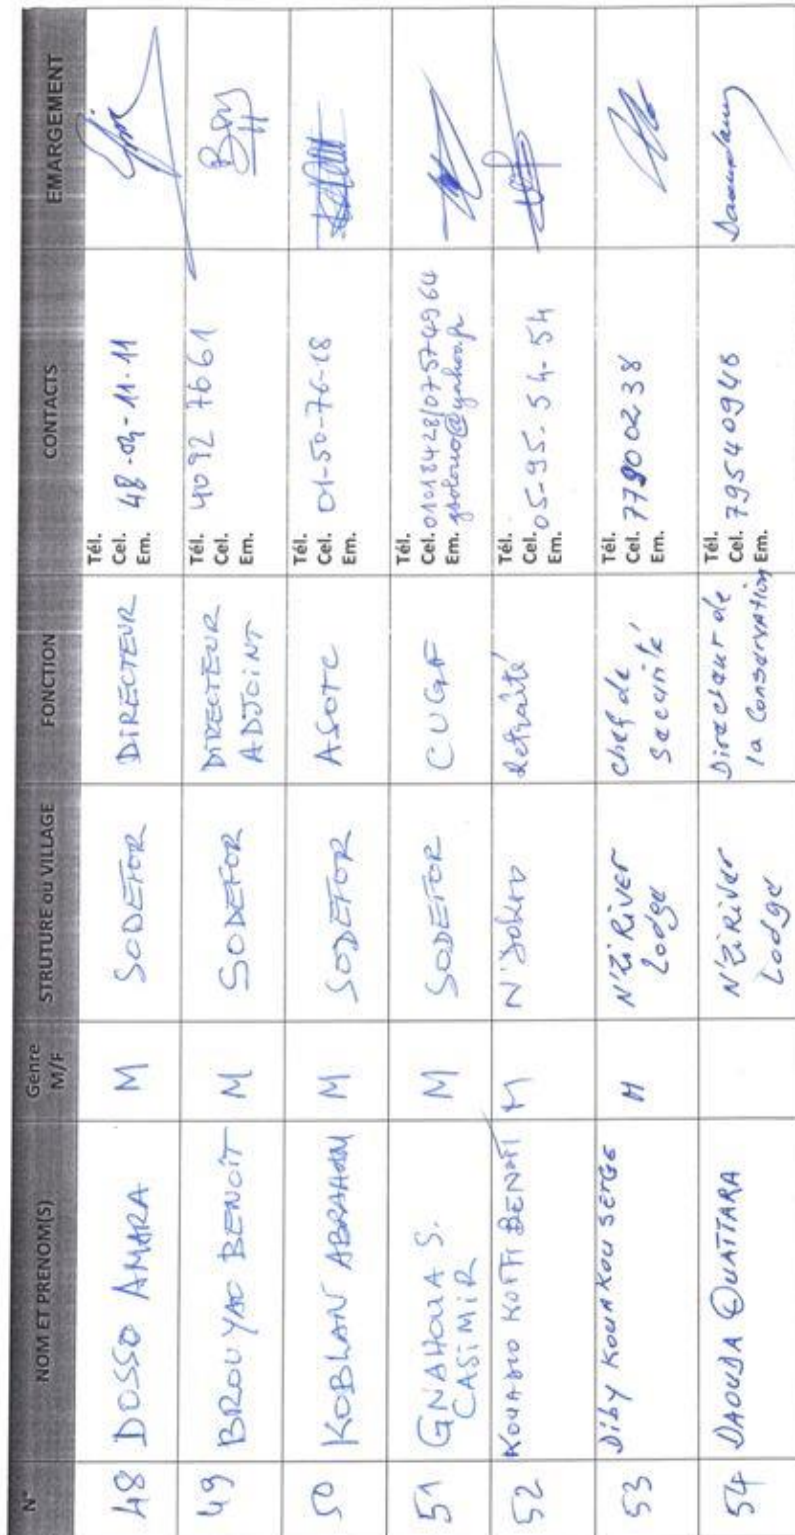 N° NOM ET PRENOM(S) Genre M/F STRUTURE ou VILLAGE FONCTION CONTACTS EMARGEMENT
48 DOSSO AMARA M SODEFOR DIRECTEUR Tél.
Cel. 48-04-11-11
Em.
49 BROU YAO BENOÎT M SODEFOR DIRECTEUR ADJOINT Tél. 4092 7661
Cel.
Em.
50 KOBLAN ABRAHAM M SODEFOR ASOTC Tél.
Cel. 01-50-76-18
Em.
51 GNAHOUA S. CASIMIR M SODEFOR CUGF Tél.
Cel. 01018428/07574964
Em. @yahoo.fr
52 KOUADIO KOFFI BENOIT M retraité Tél.
Cel. 05-95-54-54
Em.
53 Diby KOUAKOU SERGE M N'Zi River Lodge chef de sécurité Tél.
Cel. 77900238
Em.
54 DAOUDA OUATTARA N'Zi River Lodge Directeur de la Conservation Tél.
Cel. 79540946
Em.